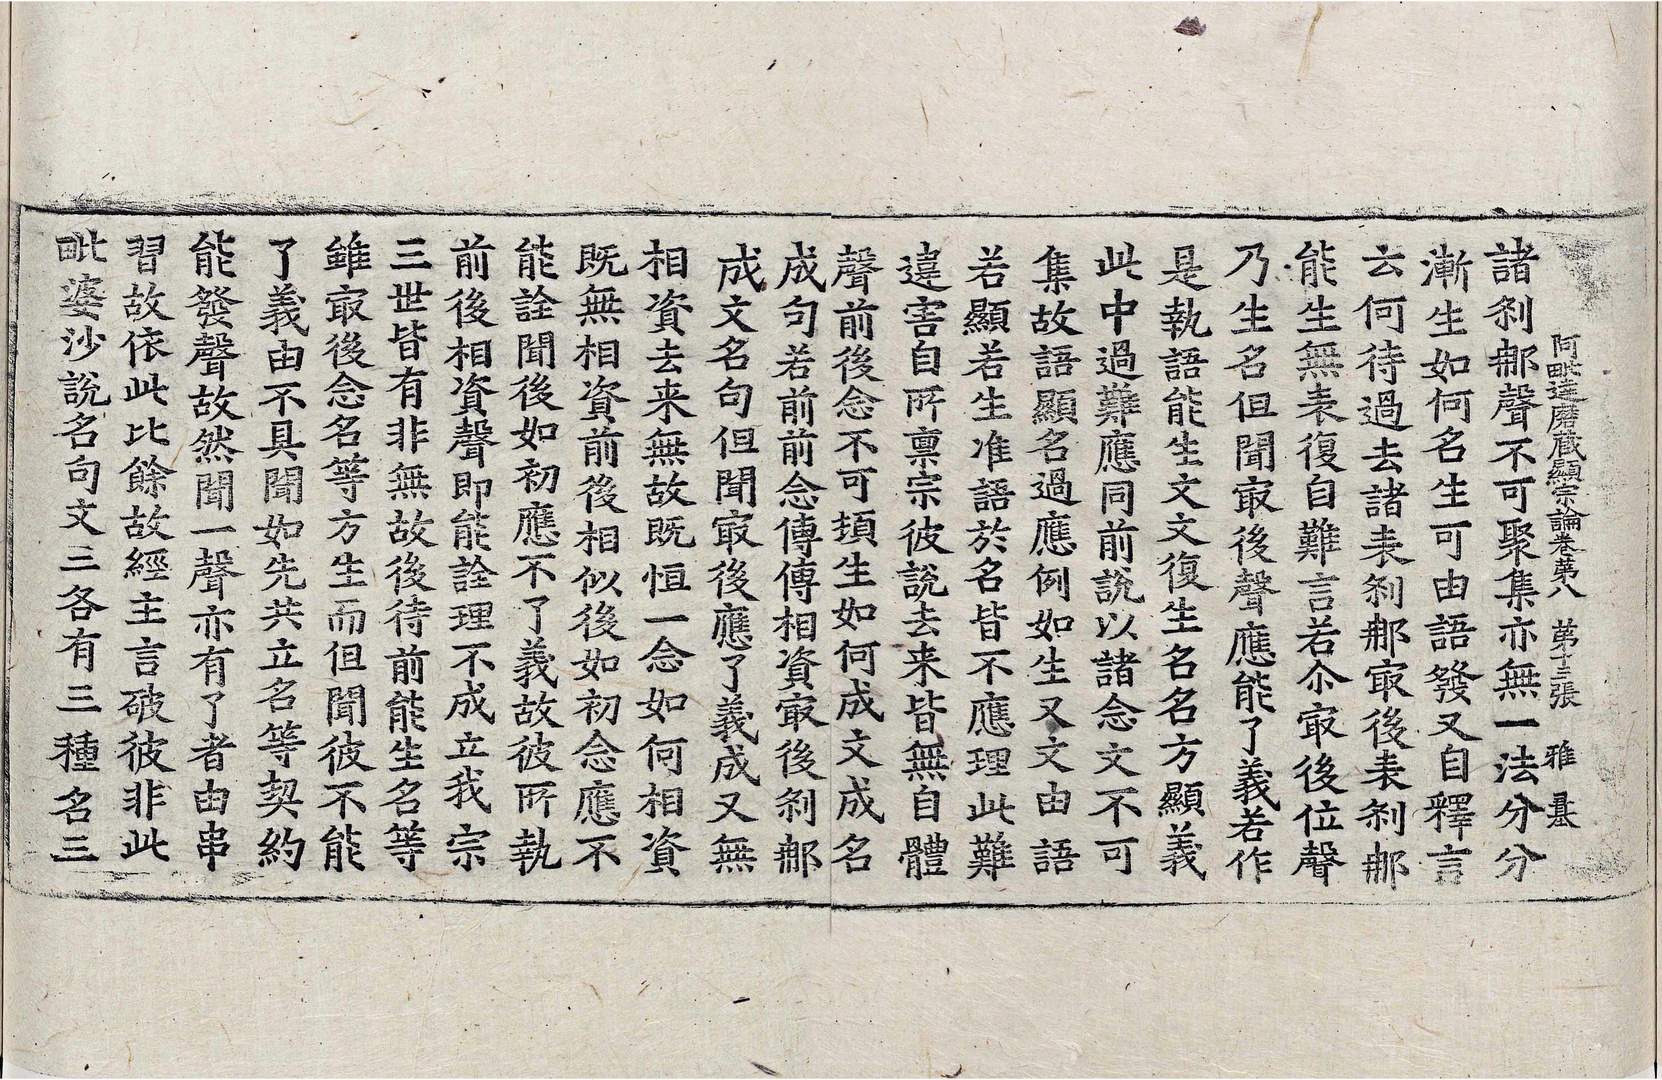 阿毗達磨藏顯宗論卷第八　第十三張　雅　基
諸刹那聲不可聚集亦無一法分分
漸生如何名生可由語發又自釋言
云何待過去諸表刹那㝡後表刹那
能生無表復自難言若尒㝡後位聲
乃生名但聞㝡後聲應能了義若作
是執語能生文文復生名名方顯義
此中過難應同前說以諸念文不可
集故語顯名過應例如生又文由語
若顯若生准語於名皆不應理此難
違害自所禀宗彼說去来皆無自體
聲前後念不可頃生如何成文成名
成句若前前念傳傳相資㝡後刹那
成文名句但聞㝡後應了義成又無
相資去来無故既恒一念如何相資
既無相資前後相似後如初念應不
能詮聞後如初應不了義故彼所執
前後相資聲即能詮理不成立我宗
三世皆有非無故後待前能生名等
雖㝡後念名等方生而但聞彼不能
了義由不具聞如先共立名等契約
能發聲故然聞一聲亦有了者由串
習故依此比餘故經主言破彼非此
毗婆沙說名句文三各有三種名三